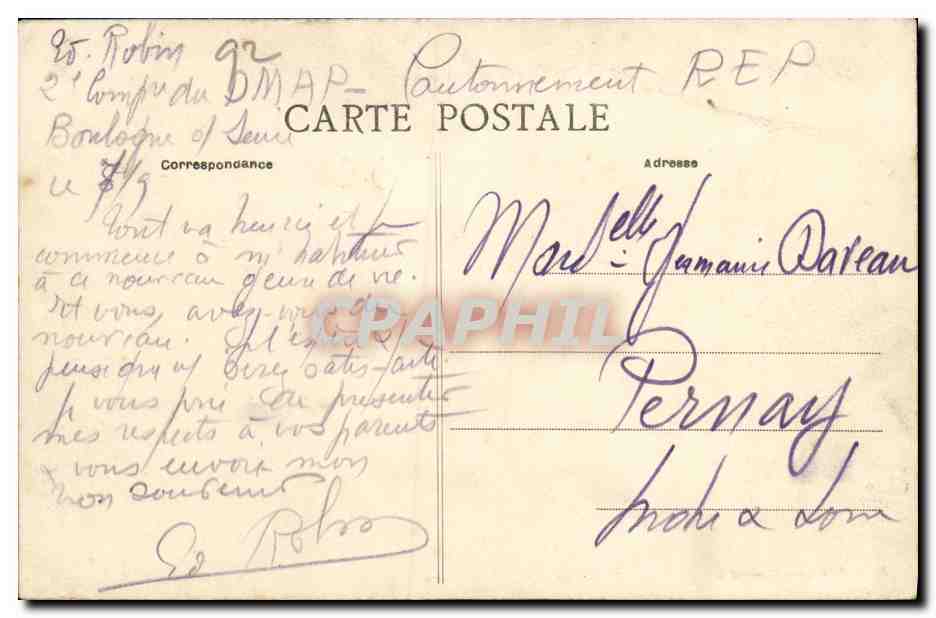 Ed. Robin 92
2e Compie du DMAP - Cantonnement REP
Boulogne s/ Seine
CARTE POSTALE
Correspondance
Adresse
le 7/9
Tout va heureu et je
commence à m'habituer
à ce nouveau genre de vie.
Et vous, avez-vous du
nouveau.
satisfaite.
Je vous prie de présenter
mes respects à vos parents
& vous envoie mon
bon souvenir
Ed Robin
Mademelle Germaine Daveau
Pernay
Indre & Loire
CPAPHIL